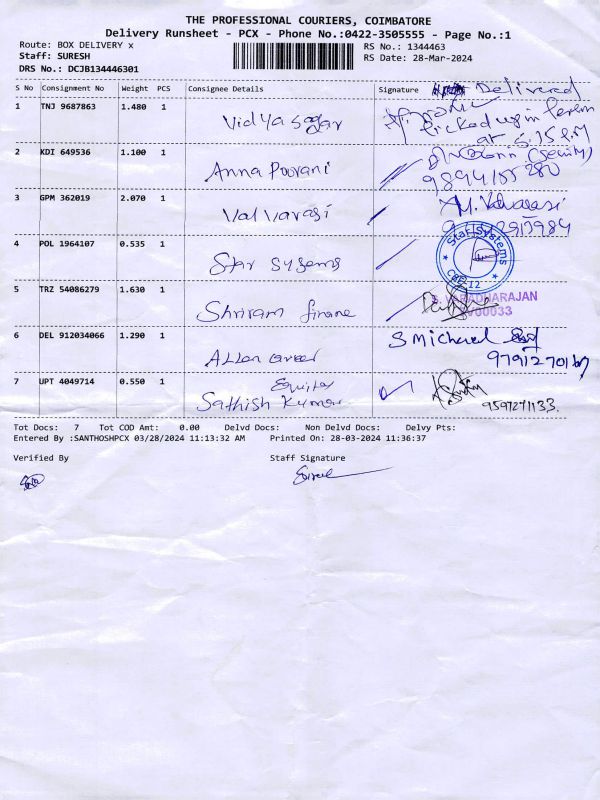 THE PROFESSIONAL COURIERS, COIMBATORE
Delivery Runsheet - PCX - Phone No.:0422-3505555 - Page No.:1
Route: BOX DELIVERY x RS No.: 1344463
Staff: SURESH RS Date: 28-Mar-2024
DRS No.: DCJB134446301
S No Consignment No Weight PCS Consignee Details Signature Delivered
1 TNJ 9687863 1.480 1 Vidya sagar
Picked up in
at 5.15 P.M
2 KDI 649536 1.100 1 Anna Poorani (Security)
3 GPM 362019 2.070 1 Val Varasi
4 POL 1964107 0.535 1 Star Systems Star Systems
CBE-12
5 TRZ 54086279 1.630 1 Shriram finane VARADHARAJAN
00033
6 DEL 912034066 1.290 1 S Michael
7 UPT 4049714 0.550 1 Equitas
Sathish Kumar 9597271133.
Tot Docs: 7 Tot COD Amt: 0.00 Delvd Docs: Non Delvd Docs: Delvy Pts:
Entered By :SANTHOSHPCX 03/28/2024 11:13:32 AM Printed On: 28-03-2024 11:36:37
Verified By Staff Signature